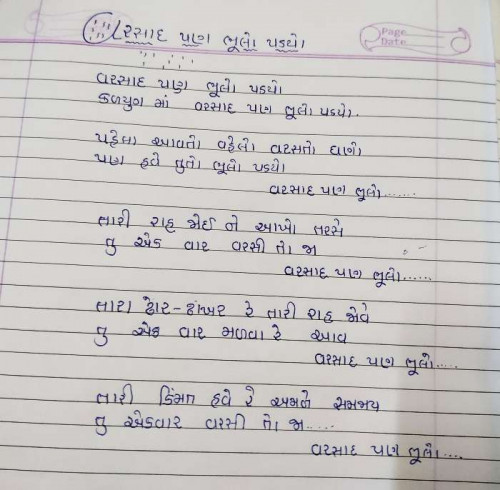 વરસાદ પણ ભૂલો પડયો
Page
Date
વરસાદ પણ ભૂલો પડયો
કળયુગ માં વરસાદ પણ ભૂલો પડયો.
પહેલા આવતો વહેલો વરસતો ઘણો
પણ હવે તુતો ભૂલો પડયો
વરસાદ પણ ભૂલો......
તારી રાહ જોઈ ને આખો તરસે
તુ એક વાર વરસી તો જા
વરસાદ પણ ભૂલો......
તારા ઢોર-ઢાંખર રે તારી રાહ જોવે
તુ એક વાર મળવા રે આવ
વરસાદ પણ ભૂલો.....
તારી કિંમત હવે રે અમને સમજાય
તુ એકવાર વરસી તો જા.....
વરસાદ પણ ભૂલો....